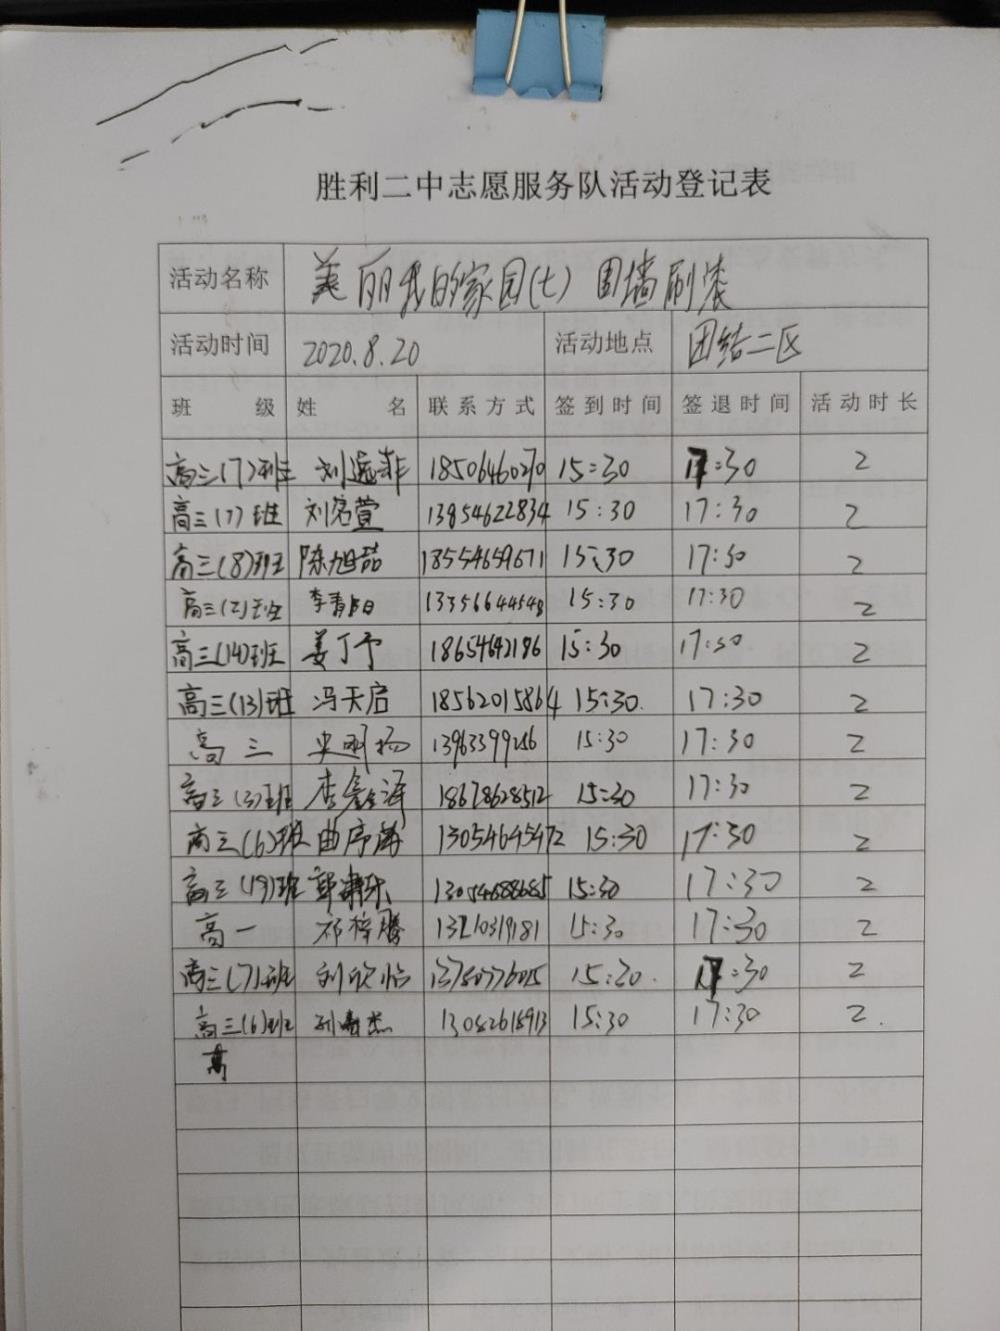 胜利二中志愿服务队活动登记表
活动名称 美丽我的家园(七) 围墙刷漆
活动时间 2020.8.20 活动地点 团结二区
班级 姓名 联系方式 签到时间 签退时间 活动时长
高三(7)班 刘远菲 18506460270 15:30 17:30 2
高三(7)班 刘容萱 13854622834 15:30 17:30 2
高三(8)班 陈旭喆 18554659671 15:30 17:30 2
高三(2)班 李青阳 13356644548 15:30 17:30 2
高三(14)班 姜丁予 18654642186 15:30 17:30 2
高三(13)班 冯天启 18562015864 15:30. 17:30 2
高三 13963399266 15:30 17:30 2
高三(3)班 李鑫泽 18678628512 15:30 17:30 2
高三(6)班 曲序海 13054645472 15:30 17:30 2
高三(19)班 13054688685 15:30 17:30 2
高一 邓梓腾 13210319181 15:30 17:30 2
高三(7)班 刘欣怡 15:20. 17:30 2
高三(6)班 13042618913 15:30 17:30 2.
高